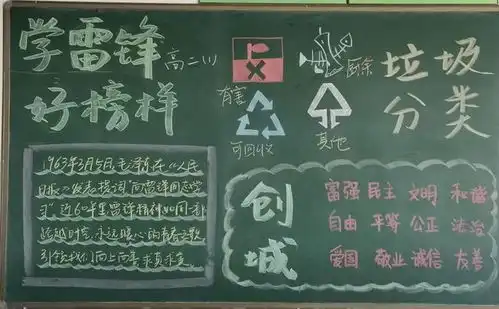 学雷锋
高二(1)
好榜样
有害
厨余
可回收
其他
垃圾
分类
1963年3月5日毛泽东在《人民
日报》发表题词"向雷锋同志学
习"近60年里雷锋精神如同一
跨越时空,永远暖心的青春
引领我们向上向善求真求美
创城
富强 民主 文明 和谐
自由 平等 公正 法治
爱国 敬业 诚信 友善